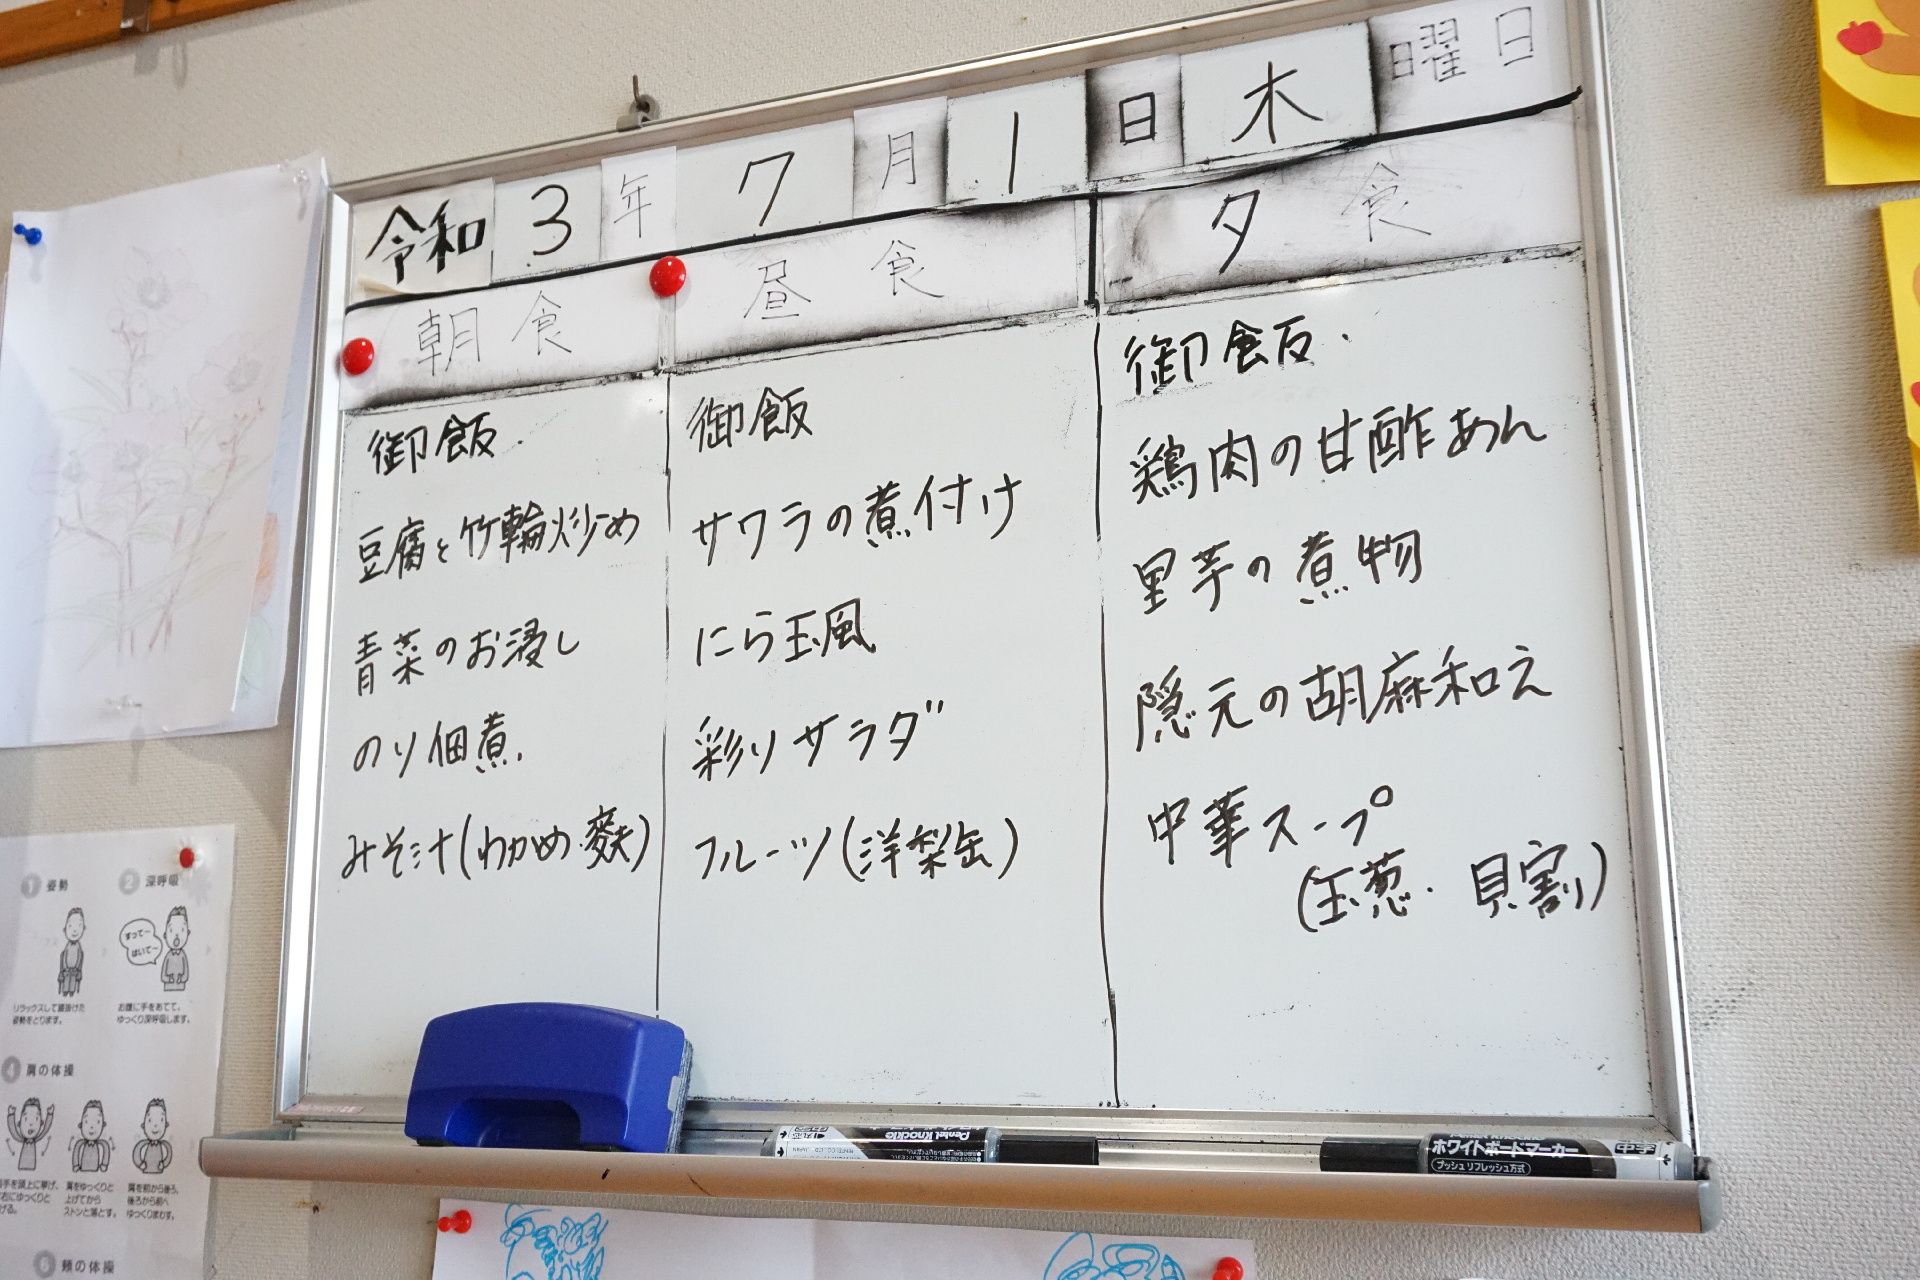 令和 3 年 7 月 1 日 木 曜日
朝食
御飯
豆腐と竹輪炒め
青菜のお浸し
のり佃煮
みそ汁(わかめ・麩)
昼食
御飯
サワラの煮付け
にら玉風
彩りサラダ
フルーツ(洋梨缶)
夕食
御飯
鶏肉の甘酢あん
里芋の煮物
隠元の胡麻和え
中華スープ
(玉葱・貝割)
1 姿勢
リラックスして腰掛けた
姿勢をとります。
2 深呼吸
すって〜
はいて〜
お腹に手をあてて、
ゆっくり深呼吸します。
4 肩の体操
手を頭上に挙げ、
右にゆっくりと
げる。
肩をゆっくりと
上げてから
ストンと落とす。
肩を前から後ろ、
後ろから前へ
ゆっくりまわす。
頬の体操
Pentel Knockle
ホワイトボードマーカー
プッシュリフレッシュ方式